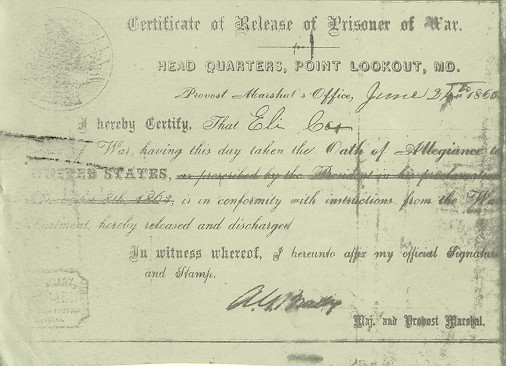 Certificate of Release of Prisoner of War.
HEAD QUARTERS, POINT LOOKOUT, MD.
Provost Marshal's Office, June 186
I hereby Certify, That Eli Cox
of War, having this day taken the Oath of Allegiance to
UNITED STATES, as prescribed by the President in his proclamation
8th 1863, is in conformity with instructions from the War
hereby released and discharged
In witness whereof, I hereunto affix my official Signature
and Stamp.
Maj. and Provost Marshal.